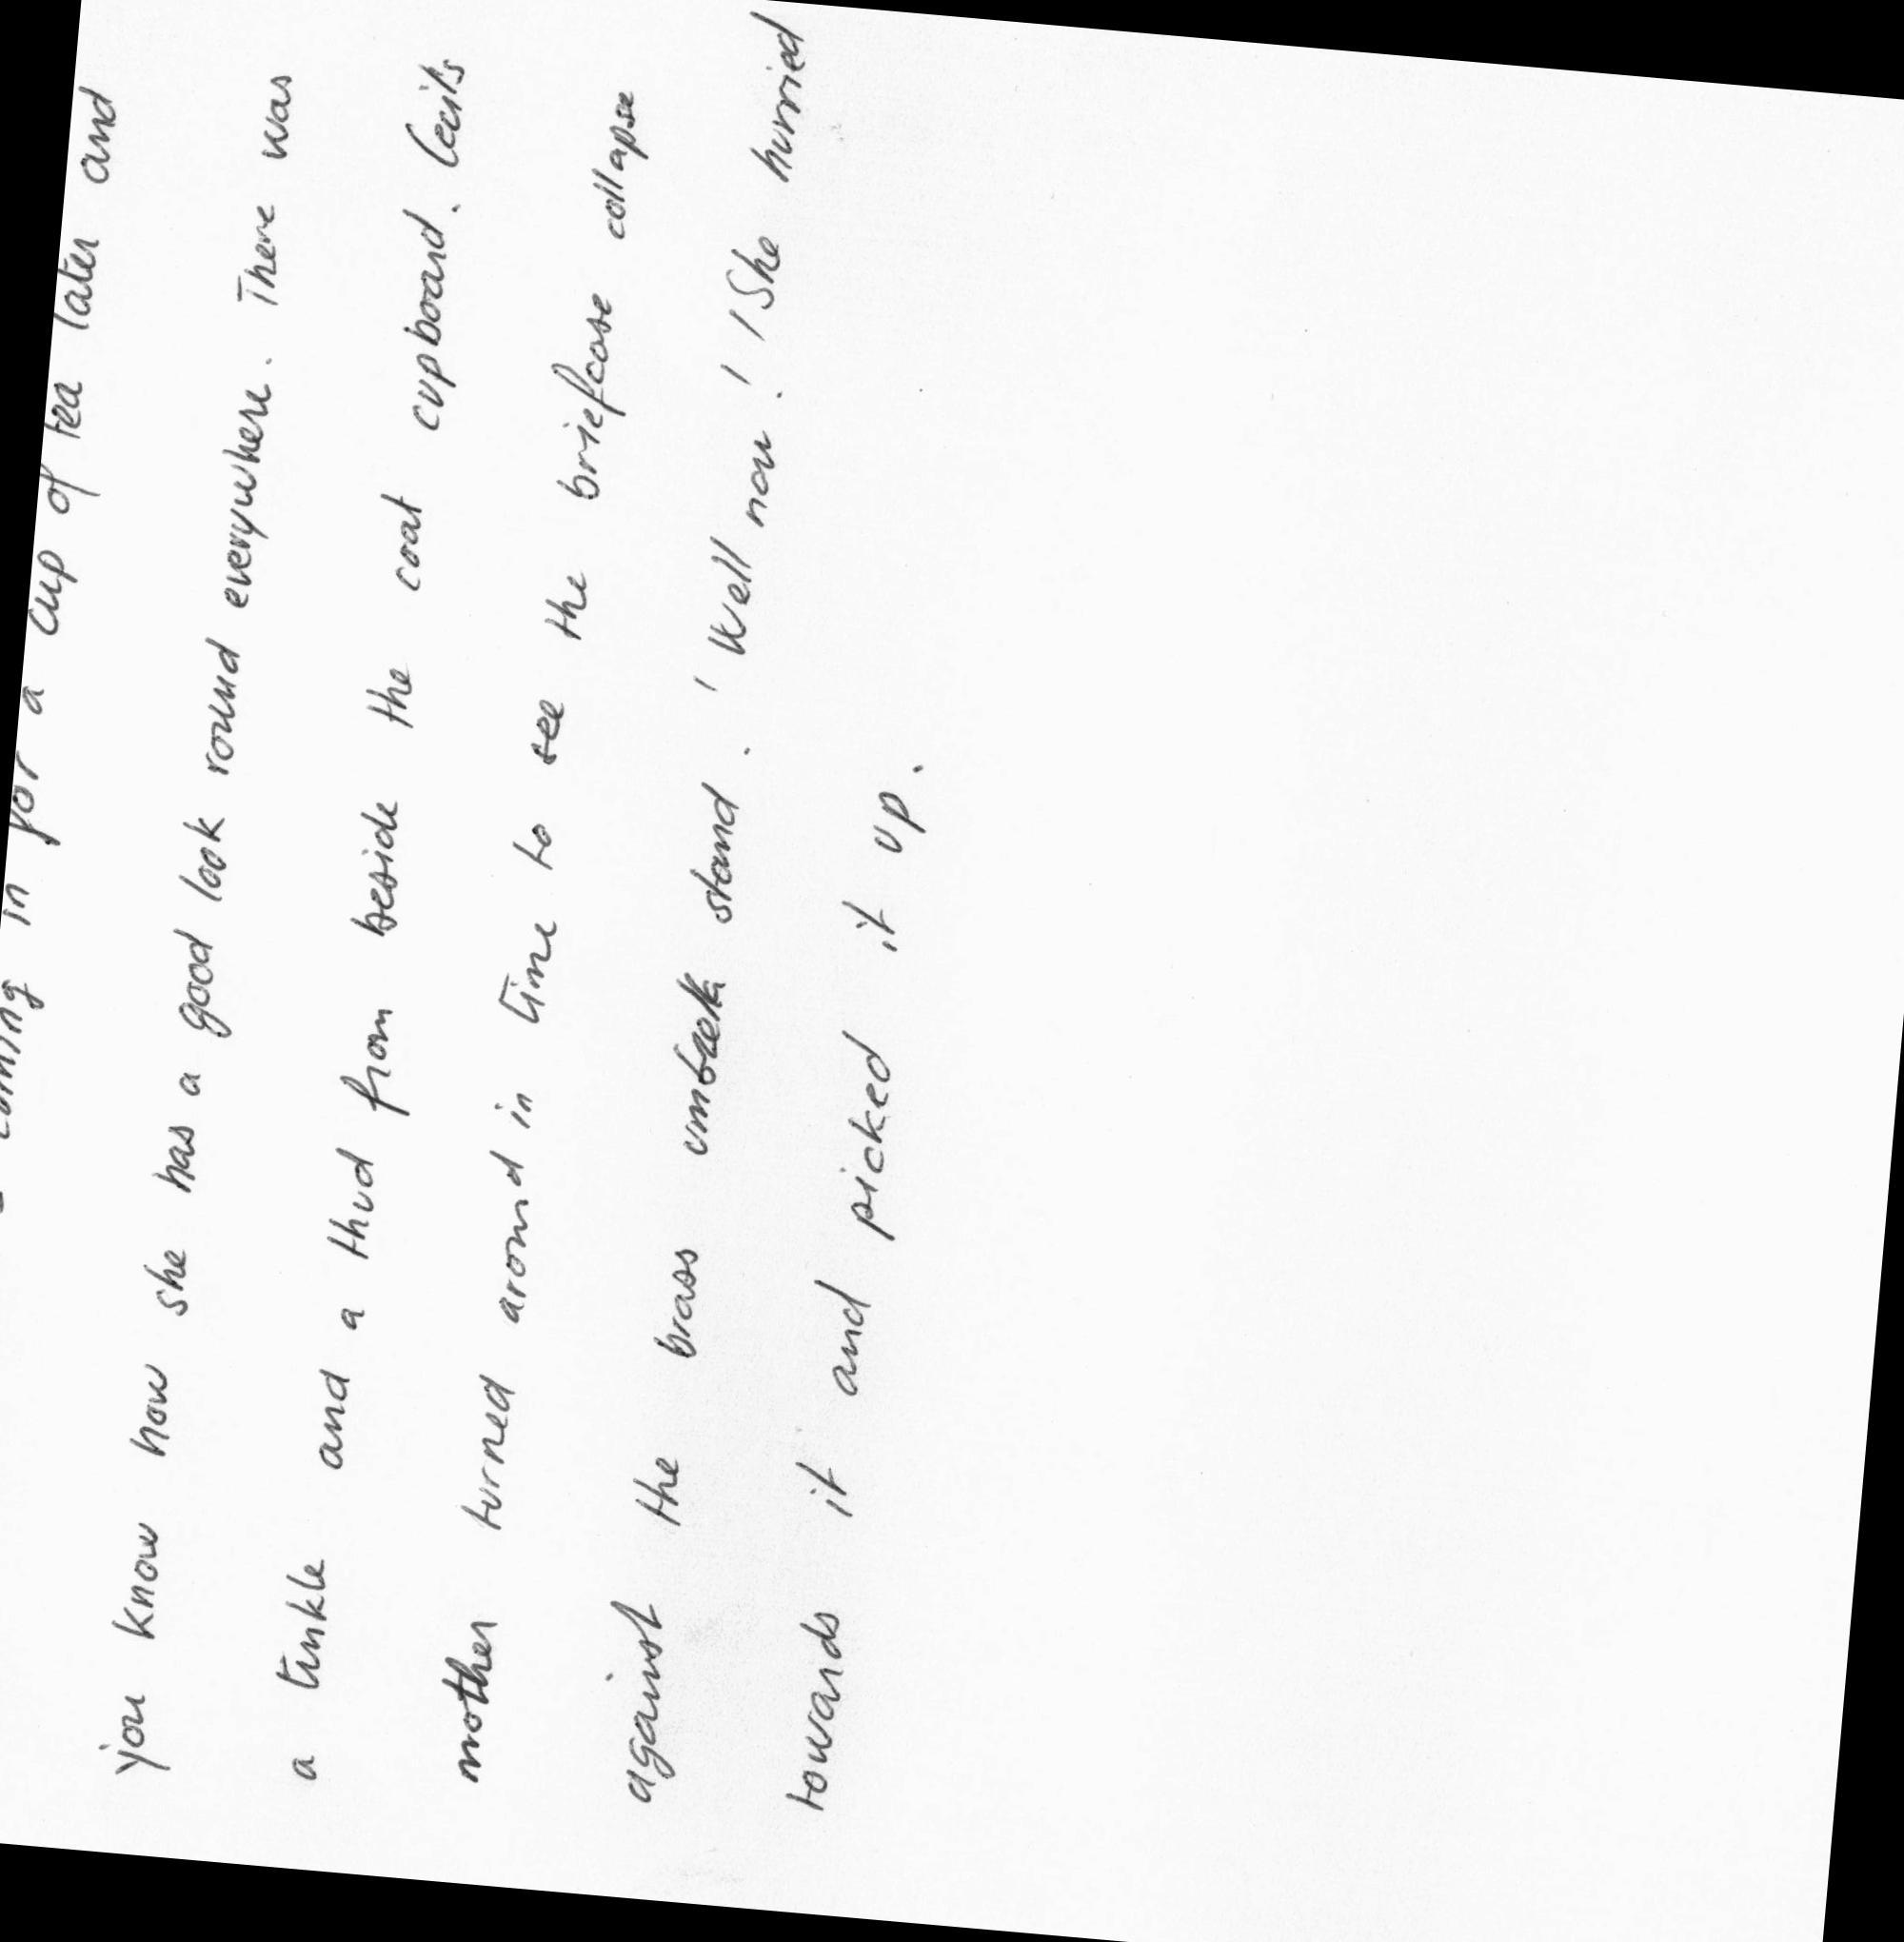 coming in for a cup of tea later and
you know how she has a good look round everywhere. There was
a tinkle and a thud from beside the coat cupboard. Cecils
mother turned around in time to see the briefcase collapse
against the brass umbrella stand. ' Well now! ' / She hurried
towards it and picked it up.